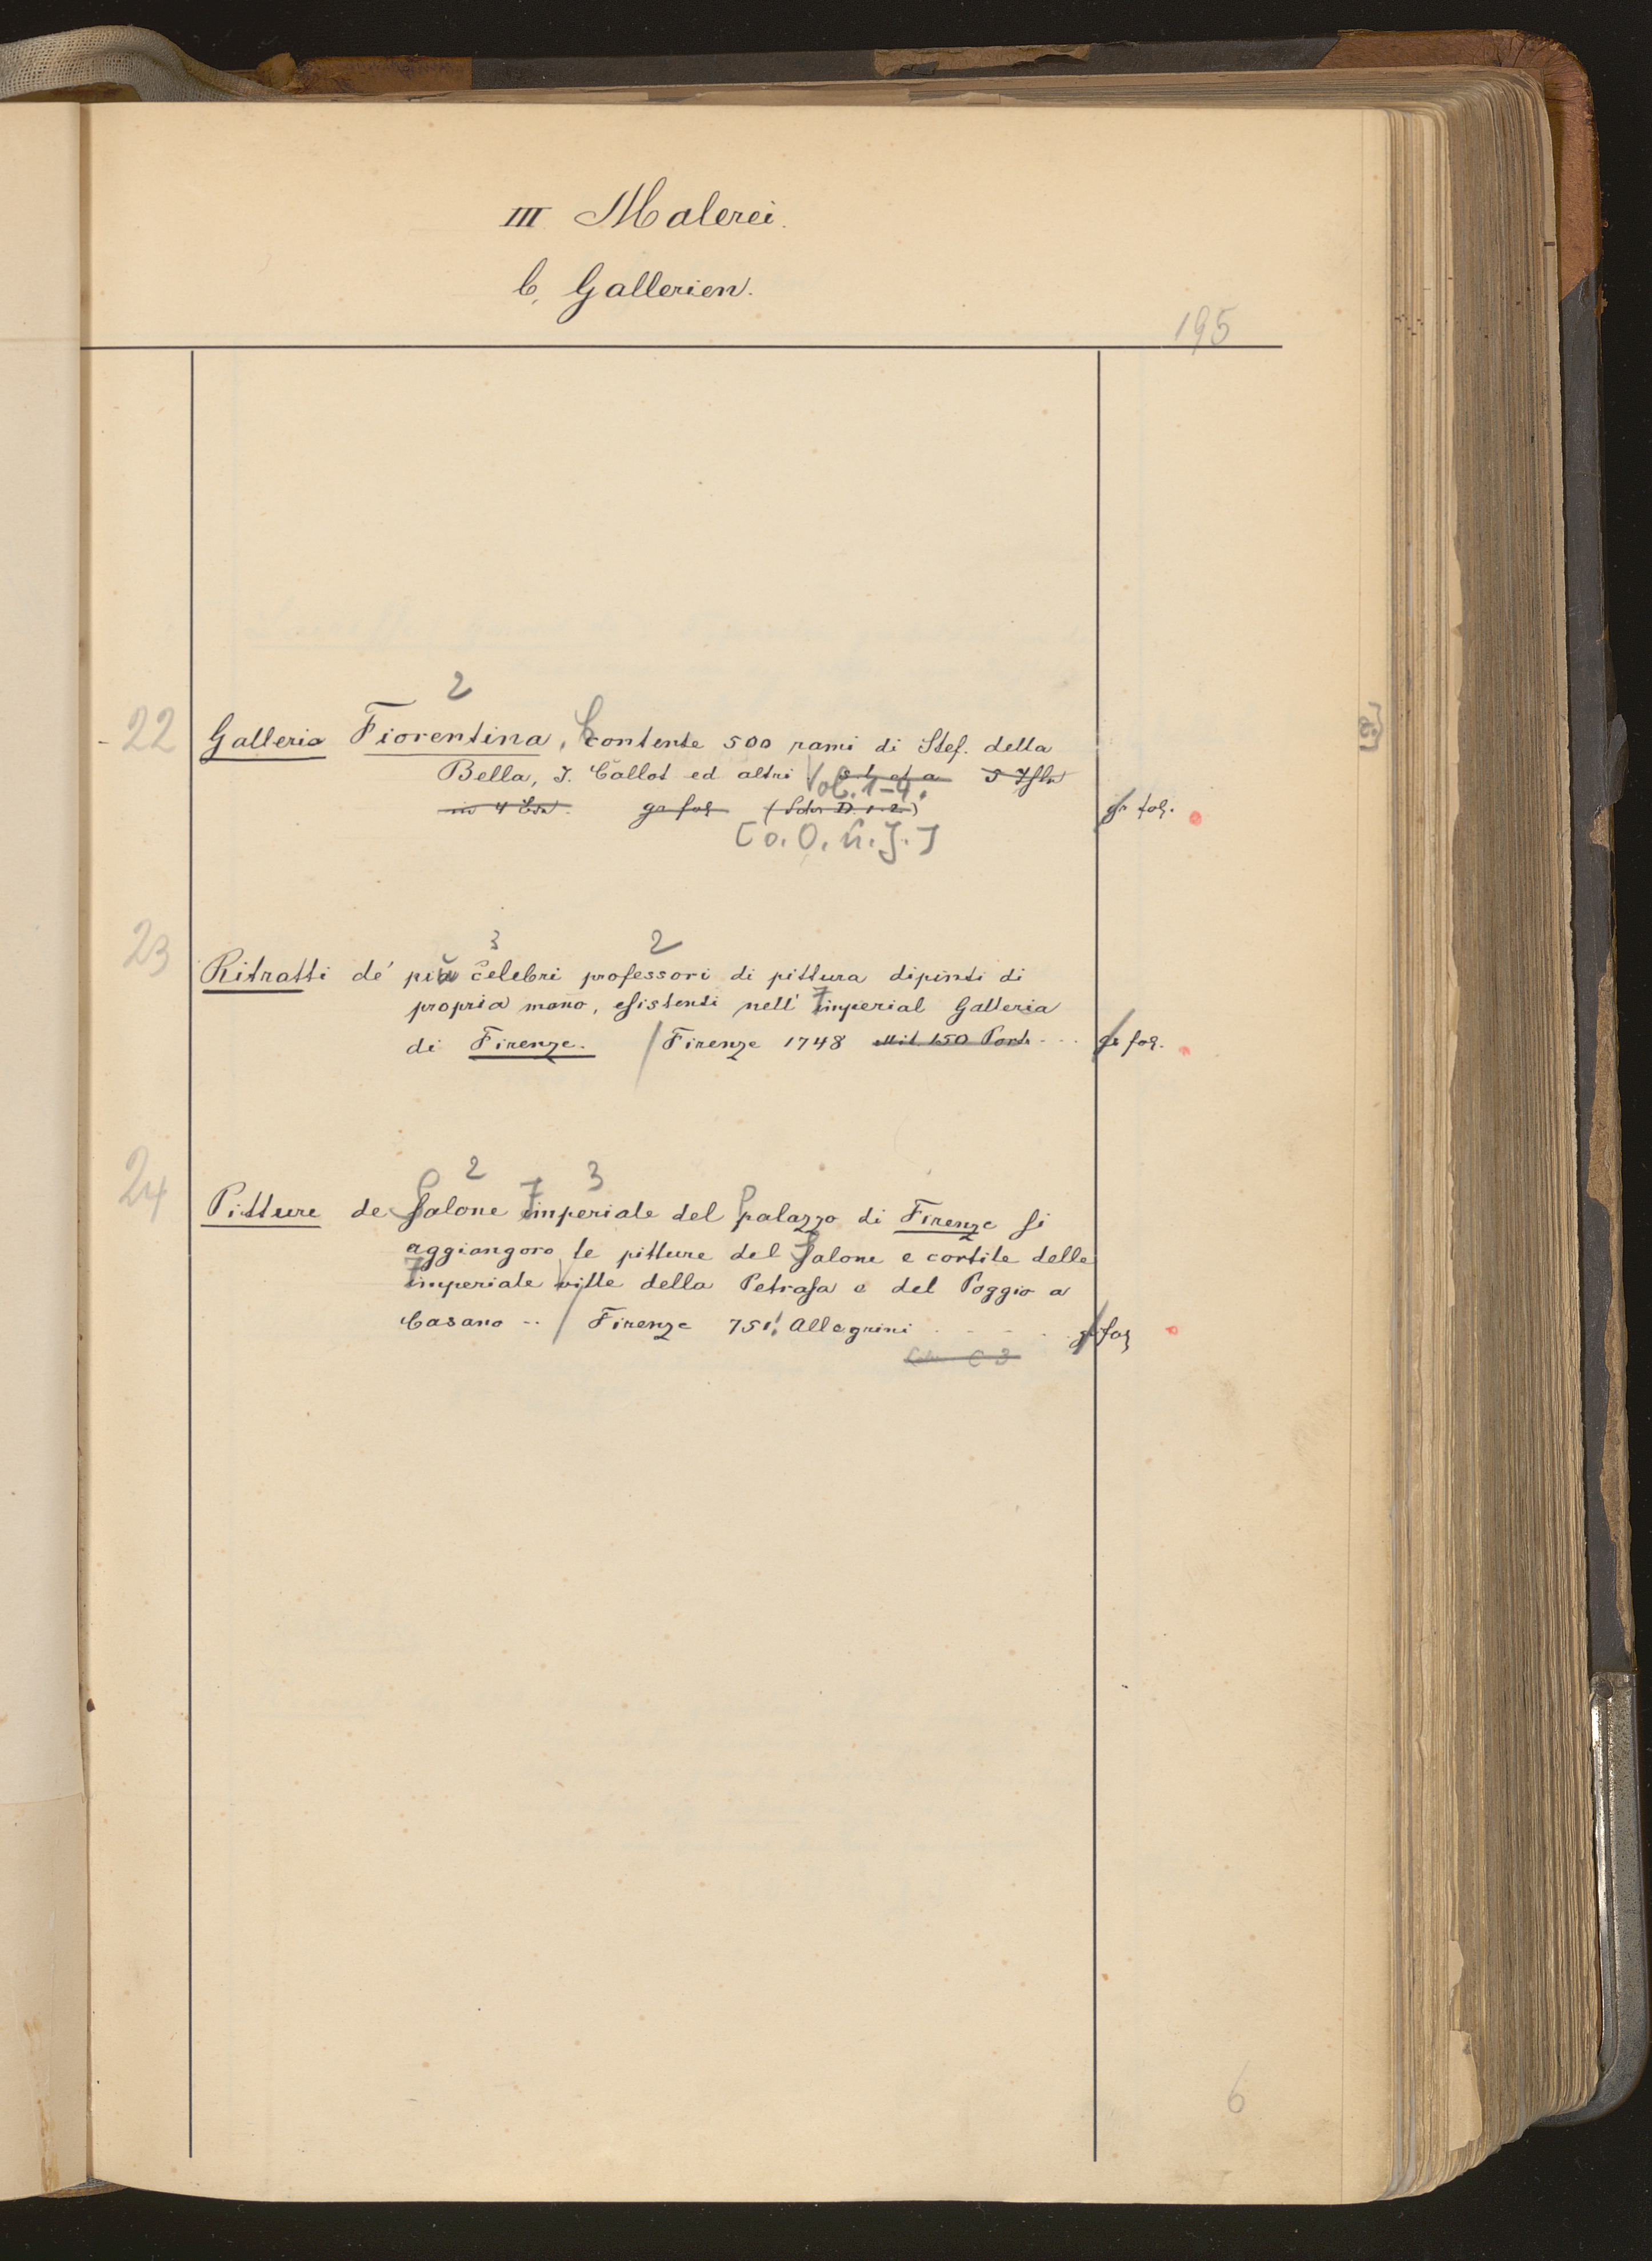 III Malerei.
b, Gallerien.
195
2
22 Galleria Fiorentina, contente 500 rami di Stef. della
Bella, J. Callot ed altri Vol. 1-4.
gr fol (Schr D. 1. 2.) gr fol.
[o. O. u. J.]
3 2
23 Ritratti de' più celebri professori di pittura dipinti di
propria mano, esistenti nell' Imperial Galleria
di Firenze. / Firenze 1748 Mit 150 Portr gr fol.
2 3
24 Pitture de Salone Imperiale del palazzo di Firenze si
aggiongoro le pitture del Salone e cortile delle
Imperiale ville della Petrasa e del Poggio a
Casano -- / Firenze 751, Allegrini gr fol
C 3
6